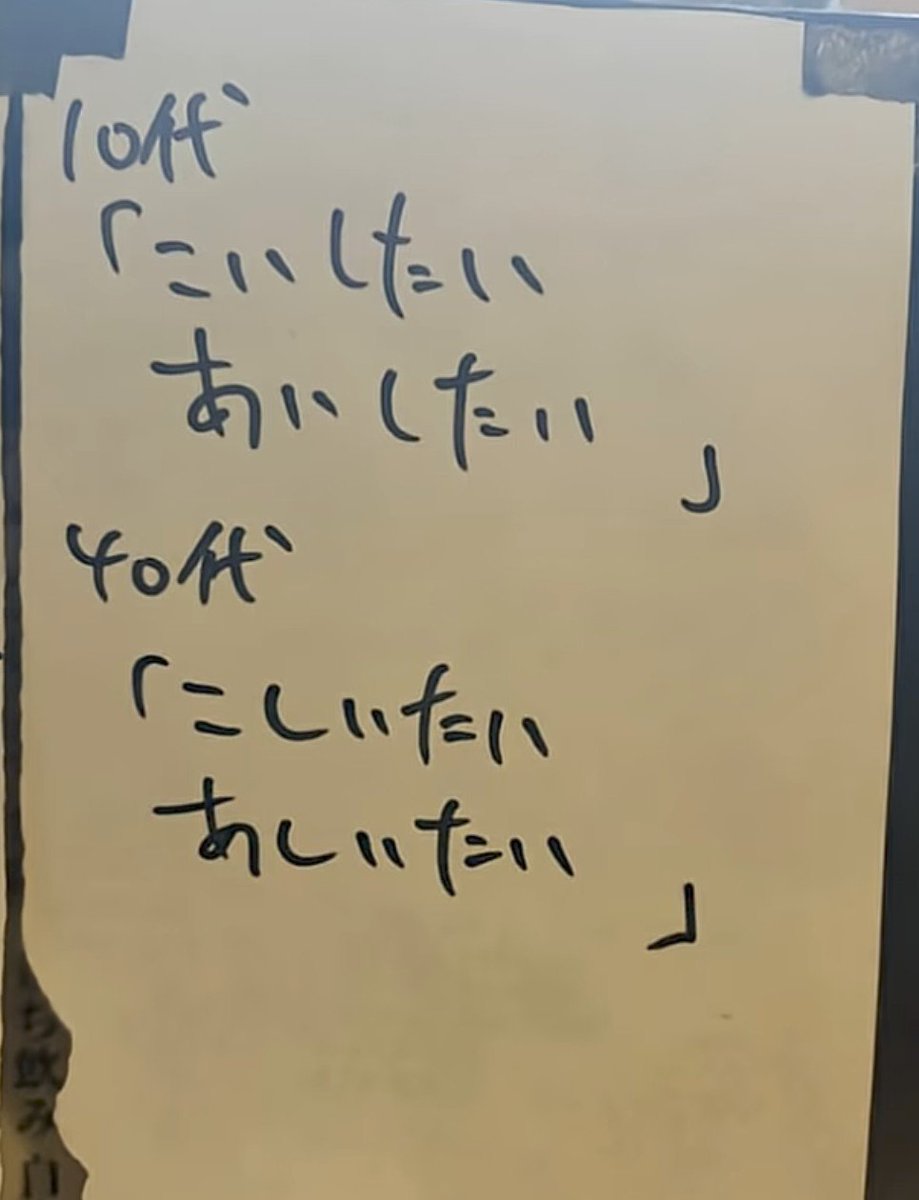 10代
「こいしたい
あいしたい
」
40代
「こしいたい
あしいたい
」
ち飲み